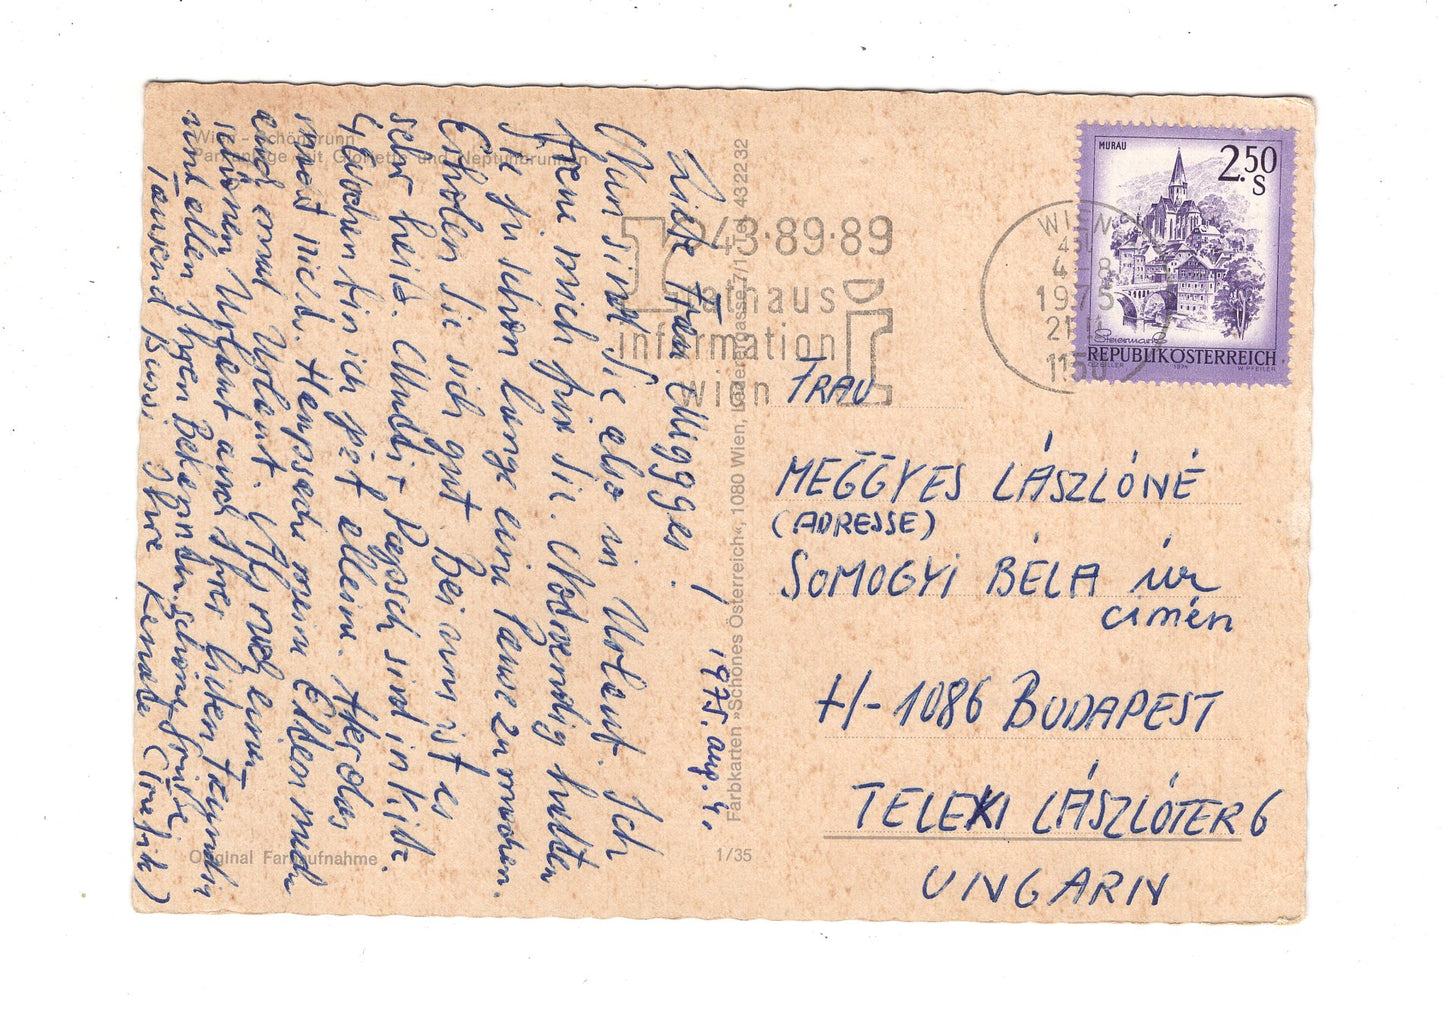 Wien - Schönbrunn
Parkanlage mit Gloriette und Neptunbrunnen
1975. aug. 4.
Liebe Frau Meggyes!
Nun sind Sie also in Urlaub. Ich
freue mich für Sie. Notwendig hätten
Sie ja schon lange eine Pause zu machen.
Erholen Sie sich gut. Bei uns ist es
sehr heiß. Mudi + Papsch sind in Kilb.
4 Wochen bin ich jetzt alleine. Aber das
macht nichts. Hauptsache meine Eltern sind
auf Urlaub. Also noch einen
schönen Urlaub und Ihrer lieben Freundin
und allen Ihren Bekannten schöne Grüße
Tausend Bussi Ihre Renate (
Original Farbaufnahme
Farbkarten »Schönes Österreich«, 1080 Wien, Lederergasse 7/1 Tel. 43 22 32
1/35
43·89·89
rathaus
information
wien
WIEN
4.-8.
1975
21
1150
MURAU
2.50
S
Steiermark
REPUBLIK ÖSTERREICH
1974
W. PFEILER
FRAU
MEGGYES LÁSZLÓNÉ
(ADRESSE)
SOMOGYI BÉLA úr
címén
H-1086 BUDAPEST
TELEKI LÁSZLÓTER 6
UNGARN